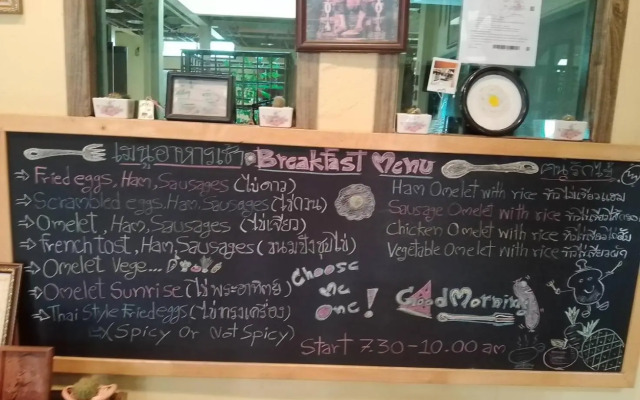 เมนูอาหารเช้า Breakfast Menu
Fried eggs, Ham, Sausages (ไข่ดาว)
Scrambled eggs, Ham, Sausages (ไข่กวน)
Omelet, Ham, Sausages (ไข่เจียว)
French tost, Ham, Sausages (ขนมปังชุปไข่)
Omelet Vege...
Omelet Sunrise (ไข่พระอาทิตย์)
Thai Style Fried eggs (ไข่ทรงเครื่อง)
(Spicy Or Not Spicy)
Ham Omelet with rice ข้าวไข่เจียวแฮม
Sausage Omelet with rice
Chicken Omelet with rice
Vegetable Omelet with rice
Choose
me
one!
Good Morning
Start 7.30-10.00 am